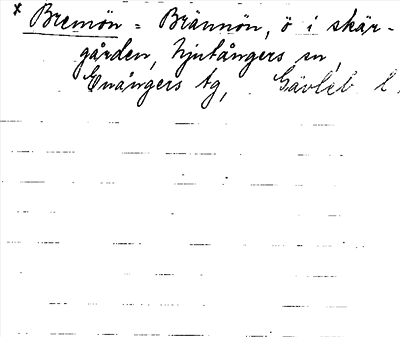 x Bremön = Brännön, ö i skär-
gården, Njutångers sn,
Enångers tg, Gävleb l.